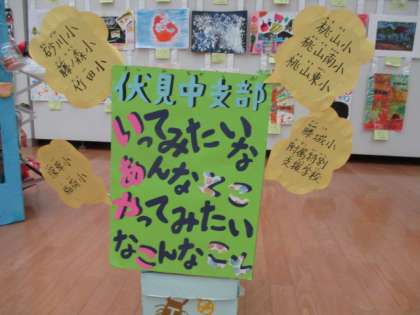 伏見中支部
いってみたいな
あんなとこ
やってみたい
なこんなこと
砂川小
藤森小
竹田小
桃山小
桃山南小
桃山東小
藤城小
附属特別
支援学校
稲荷小